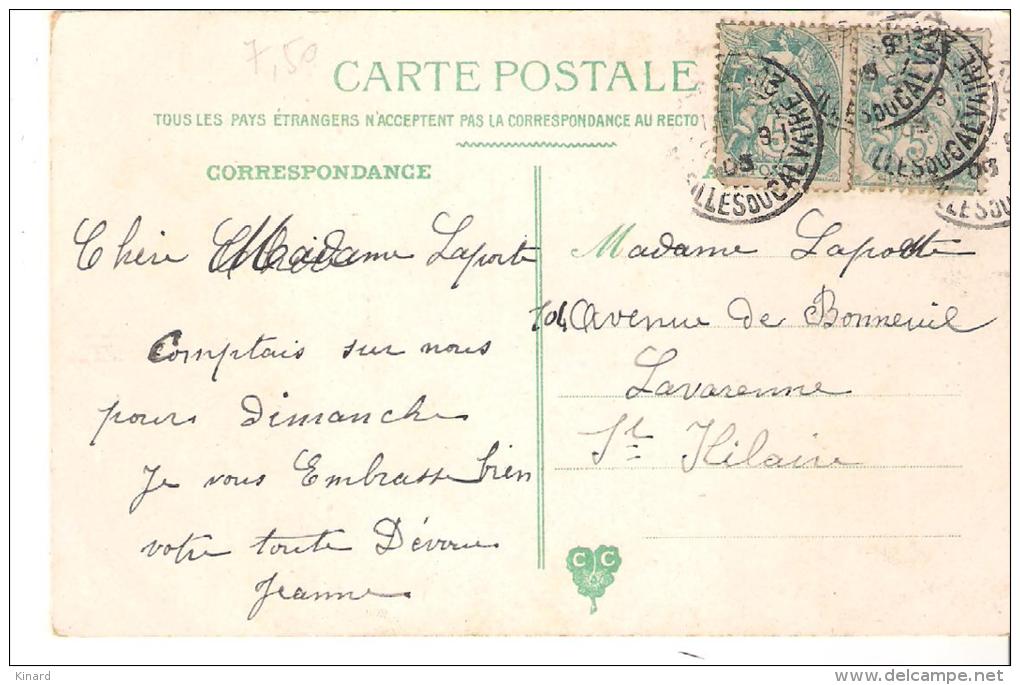 7,50
CARTE POSTALE
TOUS LES PAYS ÉTRANGERS N'ACCEPTENT PAS LA CORRESPONDANCE AU RECTO
CORRESPONDANCE
A
Chère Madame Laporte
Comptais sur nous
pours Dimanche
Je vous Embrasse bien
votre toute Dévoue
Jeanne
Madame Laporte
104 Avenue de Bonneuil
Lavarenne
St Hilaire
C C
ILLES DU CALVAIRE
03
5c
ILLES DU CALVAIRE
03
Kinard
delcampe.net